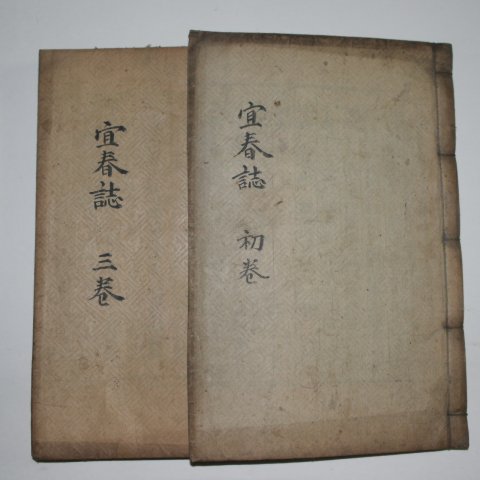 宜春誌 初卷
宜春誌 三卷